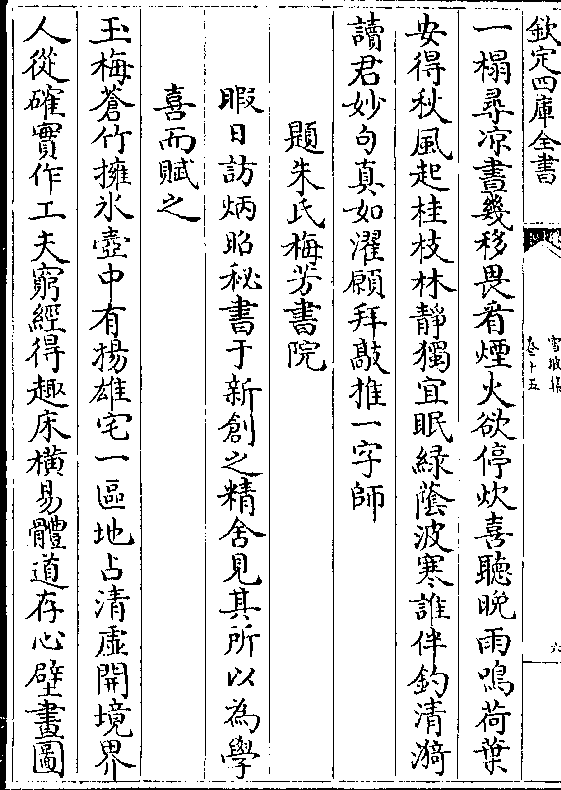 欽定四庫全書
雪坡集
卷十五
六
一榻尋凉晝幾移畏看煙火欲停炊喜聽晚雨鳴荷葉
安得秋風起桂枝林靜獨宜眠緑蔭波寒誰伴釣清漪
讀君妙句真如濯願拜敲推一字師
題朱氏梅芳書院
暇日訪炳昭秘書于新創之精舍見其所以為學
喜而賦之
玉梅蒼竹擁氷壺中有揚雄宅一區地占清虛開境界
人從確實作工夫窮經得趣床横易體道存心壁畫圖